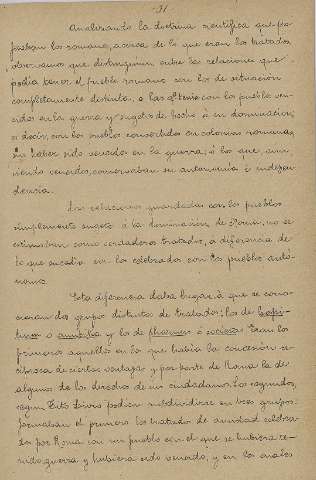 31
Analizando la doctrina científica que pro
fesaban los romanos, acerca de lo que eran los tratados,
observamos que distinguian entre las relaciones que
podia tener el pueblo romano con los de situación
completamente distinta, á las q. tenia con los pueblos ven
cidos en la guerra y sugetos de hecho á su dominación;
es decir, con los pueblos convertidos en colonias romanas,
sin haber sido vencidos en la guerra; ó los que, aun
siendo vencidos, conservaban su autonomía é indepen
dencia.
Las relaciones guardadas con los pueblos
simplemente sugetos á la dominación de Roma, no se
estimaban como verdaderos tratados, á diferencia de
lo que sucedia con los celebrados con los pueblos autó
nomos.
Esta diferencia daba lugar, á que se cono
cieran dos grupos distintos de tratados; los de
o amicitia y los de ó Eran los
primeros aquellos en los que había la concesión re
cíproca de ciertas ventajas y por parte de Roma la de
alguno de los derechos de sus ciudadanos. Los segundos,
segun Tito Livio podian subdividirse en tres grupos:
formaban el primero los tratados de amistad celebra
dos por Roma con un pueblo con el que se hubiera te
nido guerra y hubiera sido vencido, y en los cuales